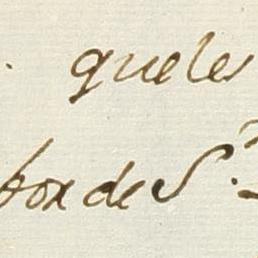 que les
box de S.